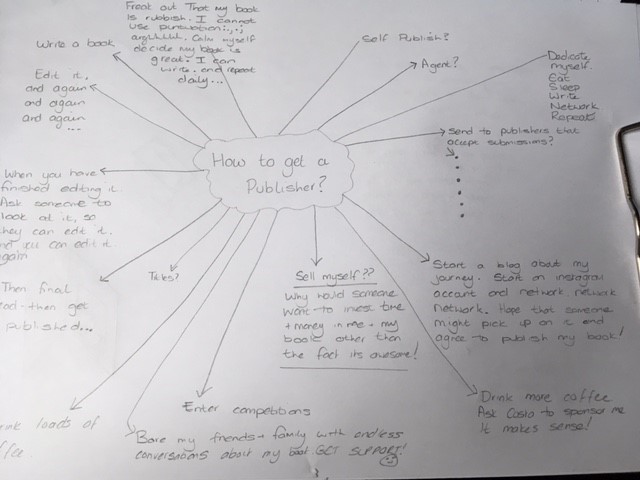 Freak out That my book
is rubbish. I cannot
use puntuation!:,;.;
arghhhhh. Calm myself
decide my book is
great. I can
write. and repeat
daily...
Self Publish?
Write a book
Agent?
Dedicate
myself.
Eat
Sleep
Write
Network
Repeat
Edit it.
and again
and again
and again
...
Send to publishers that
accept submissions?
How to get a
Publisher?
When you have
finished editing it
Ask someone to
look at it, so
they can edit it.
you can edit it
again
Then final
then get
published...
Titles?
Sell myself??
Why would someone
want to invest time
+ money in me + my
book other than
the fact its awesome!
Start a blog about my
journey. Start an instagram
account and network network
network. Hope that someone
might pick up on it and
agree to publish my book!
Enter competitions
Drink more coffee
Ask Costa to sponsor me
It makes sense!
loads of
Bore my friends + family with endless
conversations about my book. GET SUPPORT!